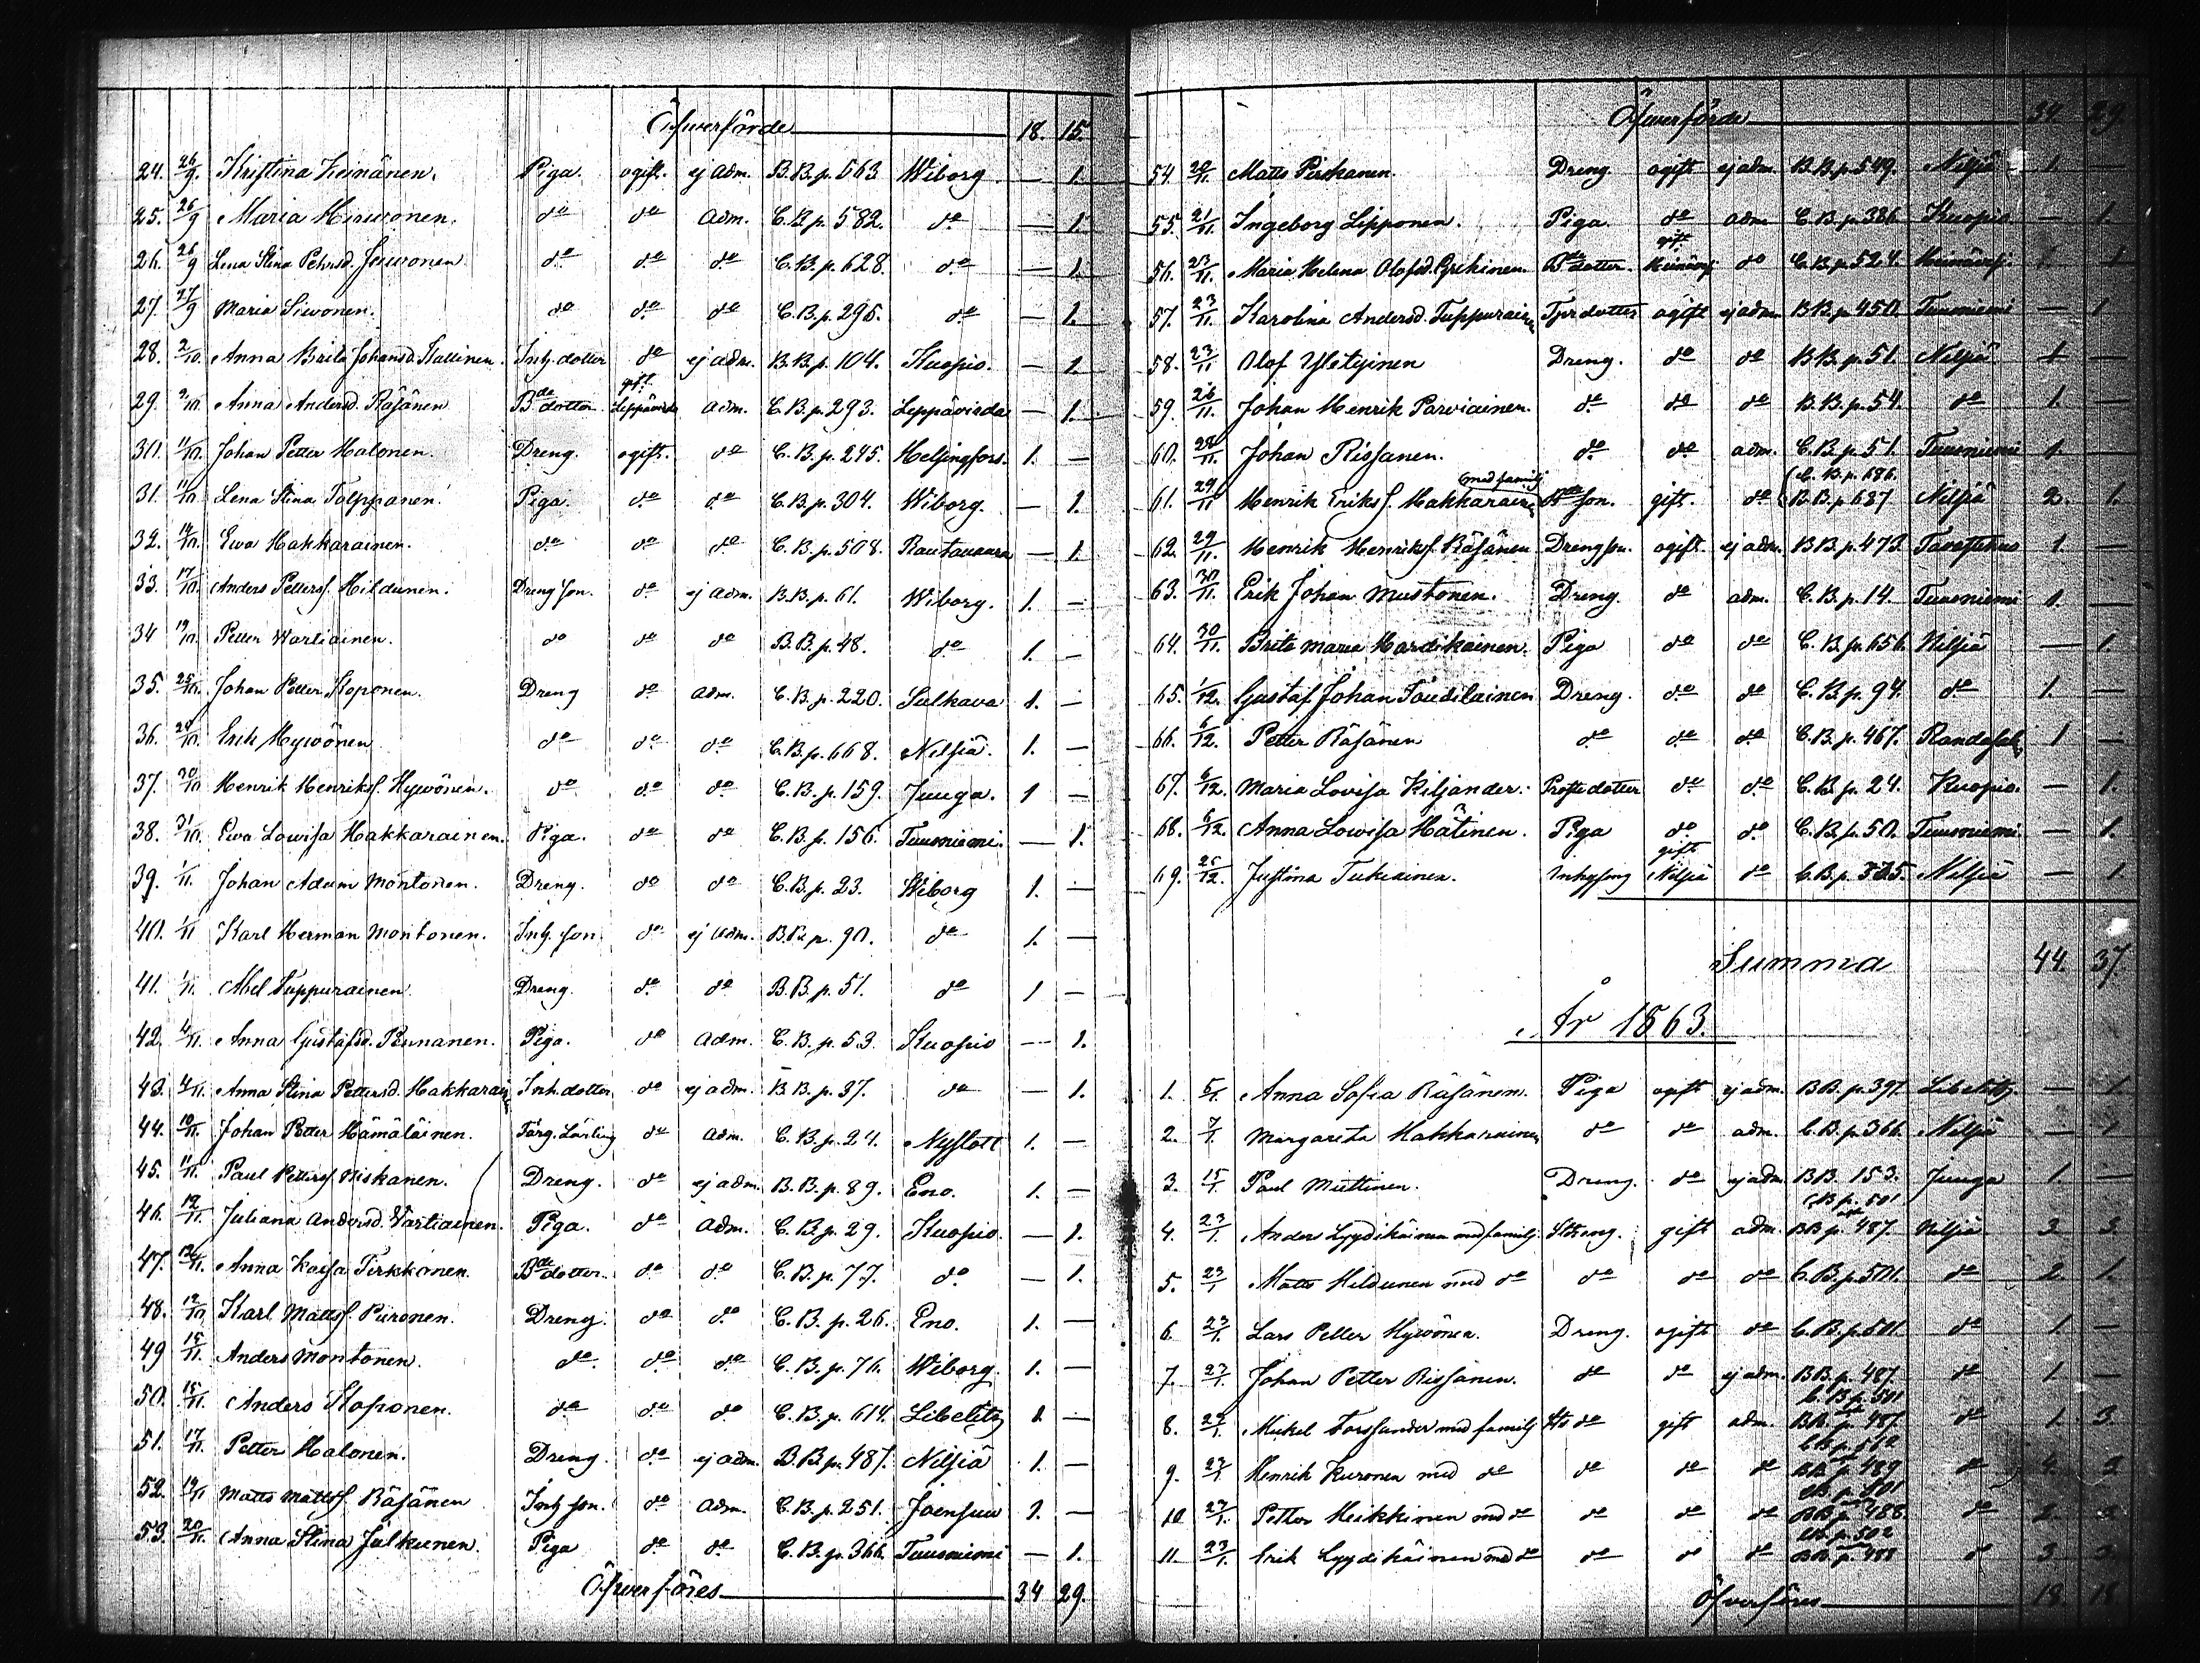 Öfwerförde 18. 15.
24. 26/9. Kristina Heinänen. Piga. ogift. ej adm. B.B.p. 563 Wiborg. — 1.
25. 26/9 Maria Hirwonen. do do adm. C.B.p. 582. do — 1.
26. 26/9 Lena Stina Pehrsd. Juwonen do do do C.B.p. 628. do — 1.
27. 27/9 Maria Siwonen. do do do C.B.p. 296. do — 1.
28. 2/10. Anna Brita Johansd. Kallinen. Inh. dotter do ej adm. B.B.p. 104. Kuopio. — 1
29. 9/10. Anna Andersd. Räsänen Bde dotter gift Leppävirda adm. C.B.p. 293. Leppävirda — 1.
30. 11/10. Johan Petter Halonen. Dreng. ogift. do C.B.p. 245. Helsingfors. 1. —
31. 11/10 Lena Stina Tolppanen. Piga. do do C.B.p. 304. Wiborg. — 1.
32. 14/10. Ewa Hakkarainen. do do do C.B.p. 508. Rautawaara — 1.
33. 17/10. Anders Petterss. Hildunen. Dreng son. do ej adm. B.B.p. 61. Wiborg. 1. —
34 19/10. Petter Wartiainen. do do do B.B.p. 48. do 1. —
35. 25/10. Johan Petter Koponen. Dreng do adm. C.B.p. 220. Sulkava 1. —
36. 29/10. Erik Hywönen do do do C.B.p. 668. Nilsiä. 1. —
37. 30/10 Henrik Henrikss. Hywönen. do do do C.B.p. 159. Juuga. 1 —
38. 31/10. Ewa Lowisa Hakkarainen. Piga. do do C.B.p. 156. Tuusniemi. — 1.
39. 1/11. Johan Adam Montonen. Dreng. do do C.B.p. 23. Wiborg 1. —
40. 1/11 Karl Herman Montonen. Inh. son do ej adm. B.B. p. 90. do 1. —
41. 1/11. Abel Tuppurainen Dreng. do do B.B.p. 51. do 1 —
42. 4/11. Anna Gustafsd. Punanen. Piga. do adm. C.B.p. 53. Kuopio — 1.
43. 4/11. Anna Stina Pettersd. Hakkarain Inh. dotter do ej adm. B.B.p. 37. do — 1.
44. 10/11. Johan Petter Hämäläinen. Färg. Lärling do adm. C.B.p. 24. Nyslott 1. —
45. 11/11. Paul Petterss. Niskanen. Dreng. do ej adm. B.B.p. 89. Eno. 1. —
46. 12/11. Juliana Andersd. Wartiainen. Piga. do adm. C.B.p. 29. Kuopio. — 1.
47. 12/11. Anna Kaisa Tirkkonen. Bde dotter. do do C.B.p. 77. do — 1.
48. 12/11 Karl Mattss. Piironen. Dreng. do do C.B.p. 26. Eno. 1. —
49 15/11. Anders Montonen. do. do do C.B.p. 76. Wiborg. 1. —
50. 15/11. Anders Koponen. do do do C.B.p. 614. Libelitz 1. —
51. 17/11. Petter Halonen. Dreng. do ej adm. B.B.p. 487. Nilsiä 1. —
52. 19/11 Matts Mattss. Räsänen Inh. son. do adm. C.B.p. 251. Joensuu 1. —
53. 20/11. Anna Stina Julkunen. Piga do do C.B.p. 366. Tuusniemi — 1.
Öfwerföres 34 29.
Öfwerförde 34. 29
54. 20/11. Matts Pirskanen. Dreng. ogift ej adm. B.B.p. 549. Nilsiä 1. —
55. 21/11. Ingeborg Lipponen. Piga. do adm C.B.p. 386 Kuopio — 1.
56. 23/11. Maria Helena Olofsd. Bde dotter. gift do C.B.p. 524. 1
57. 23/11. Karolina Andersd. Tuppurainen dotter ogift ej adm B.B.p. 450. Tuusniemi — 1
58. 23/11 Olof Yletyinen Dreng. do do B.B.p. 51. Nilsiä 1 —
59. 26/11. Johan Henrik Parviainen. do do do B.B.p. 54. do 1. —
60. 28/11. Johan Rissanen. do do adm. C.B.p. 51. Tuusniemi 1. —
61. 29/11 Henrik Erikss. Hakkarainen med familj Bde son. gift. do C.B.p. 686. B.B.p. 687 Nilsiä 2. 1.
62. 29/11. Henrik Henrikss. Räsänen Dreng son. ogift. ej adm. B.B.p. 473. Tavastehus 1. —
63. 30/11. Erik Johan Mustonen. Dreng. do adm. C.B.p. 14. Tuusniemi 1. —
64. 30/11. Brita Maria Hardikainen. Piga do do C.B.p. 656. Nilsiä — 1.
65. 1/12. Gustaf Johan Taudilainen Dreng. do do C.B.p. 94. do 1. —
66. 6/12. Petter Räsänen do do do C.B.p. 467. Randasalmi 1 —
67. 6/12. Maria Lovisa Kiljander. Prosts dotter do do C.B.p. 24. Kuopio. — 1.
68. 6/12. Anna Lowisa Hätinen. Piga do do C.B.p. 50. Tuusniemi — 1.
69. 25/12. Justina Tukiainen. Inhysing gift Nilsiä do C.B.p. 335. Nilsiä — 1
Summa 44. 37.
År 1863.
1. 5/1. Anna Sofia Räsänen. Piga ogift ej adm. B.B.p. 397. Libelitz. — 1.
2. 7/1. Margareta Hakkarainen do do adm. C.B.p. 366. Nilsiä — 1
3. 15/1. Paul Miettinen. Dreng. do ej adm B.B. 153. Juuga 1. —
4. 23/1. Anders Lyydikäinen med familj gift adm. C.B.p. 501 B.B.p. 487. Nilsiä 3 3.
5. 23/1 Matts Hildunen med do do do do C.B.p. 501. do 2. 1.
6. 23/1. Lars Petter Hywönen. Dreng. ogift do C.B.p. 501 do 1. —
7. 23/1. Johan Petter Rissanen. do do ej adm. B.B.p. 487. do 1 —
8. 23/1. Mickel Forssander med familj do gift adm. C.B.p. 501 B.B.p. 487. do 1. 3.
9. 23/1. Henrik Kuronen med do do do do C.B.p. 512 B.B.p. 489 do 4. 2
10. 23/1. Petter Heikkinen med do do do do C.B.p. 501 B.B.p. 488. do 2.
11. 23/1. Erik Lyydikäinen med do do do do C.B.p. 502 B.B.p. 488 do 3.
Öfwerföres